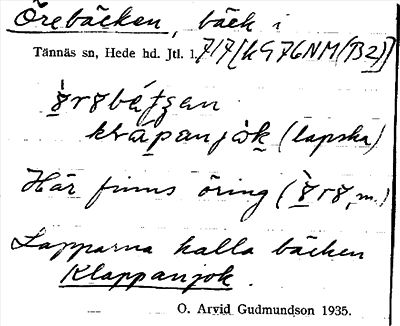 Örebäcken, bäck i
Tännäs sn, Hede hd. Jtl. l. 717[KG76NM(B2)]
kråpanjòk (lapska)
Här finns öring (
Lapparna kalla bäcken
Klappanjok.
O. Arvid Gudmundson 1935.